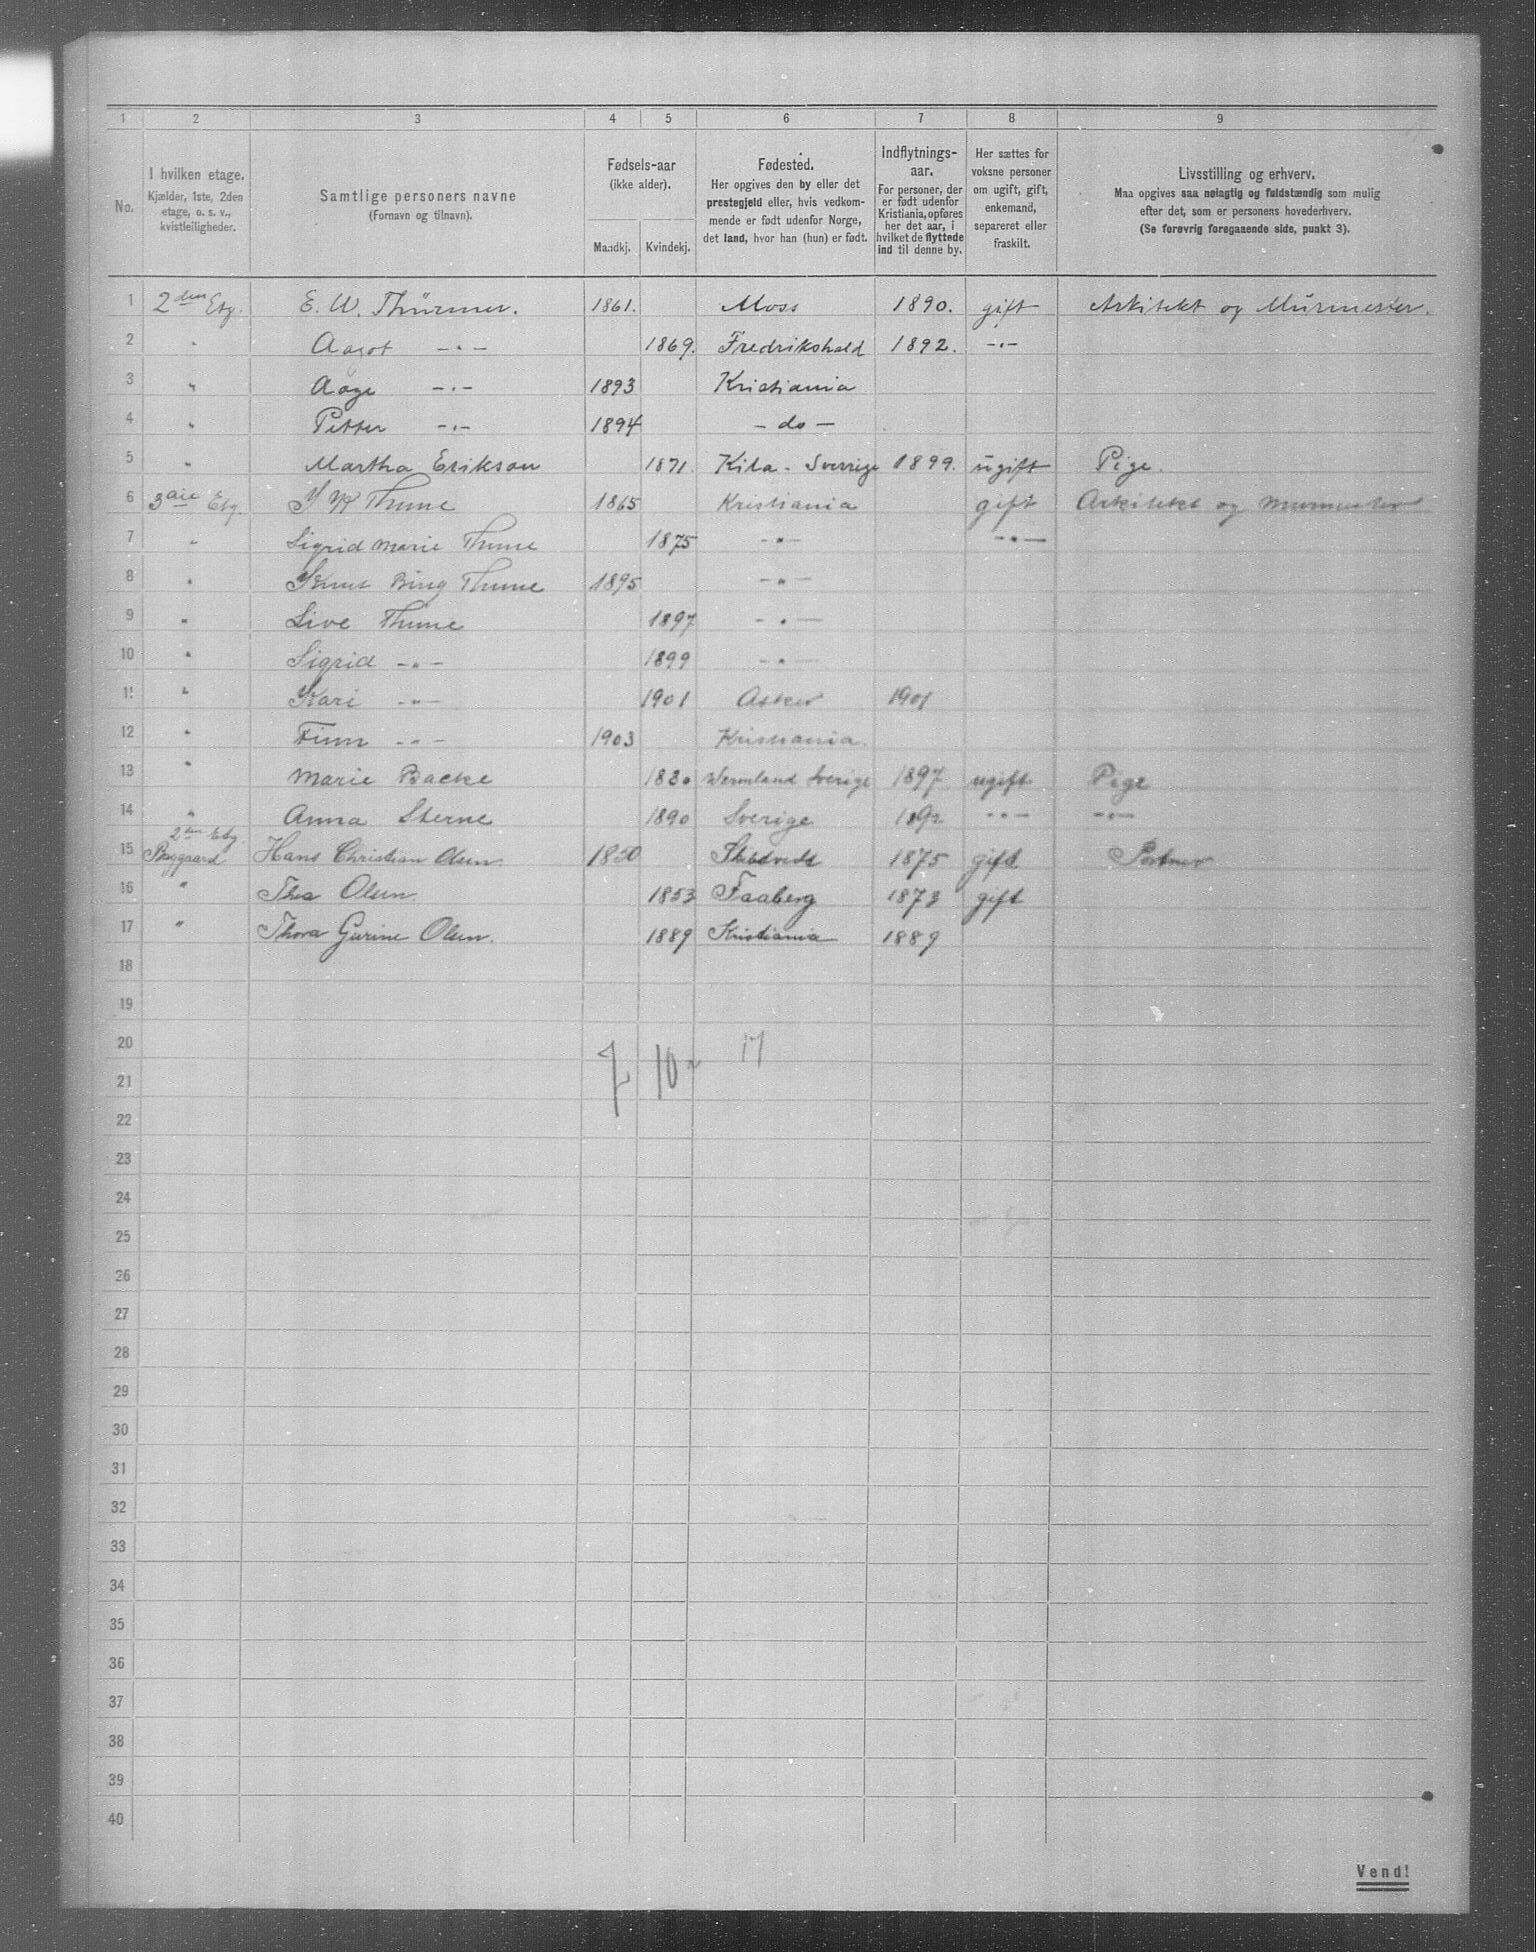 1 2 3 4 5 6 7 8 9
No.
I hvilken etage.
Kjælder, 1ste, 2den
etage, o. s. v.,
kvistleiligheder.
Samtlige personers navne
(Fornavn og tilnavn).
Fødsels-aar
(ikke alder).
Mandkj. Kvindekj.
Fødested.
Her opgives den by eller det
prestegjeld eller, hvis vedkom-
mende er født udenfor Norge,
det land, hvor han (hun) er født.
Indflytnings-
aar.
For personer, der
er født udenfor
Kristiania, opføres
her det aar, i
hvilket de flyttede
ind til denne by.
Her sættes for
voksne personer
om ugift, gift,
enkemand,
separeret eller
fraskilt.
Livsstilling og erhverv.
Maa opgives saa nøiagtig og fuldstændig som mulig
efter det, som er personens hovederhverv.
(Se forøvrig foregaaende side, punkt 3).
1 2den Etg. E. W. Thürmer. 1861. Moss 1890. gift Arkitekt og Murmester.
2 " Aagot -"- 1869. Fredrikshald 1892. -"-
3 " Aage -"- 1893 Kristiania
4 " Petter -"- 1894 - do -
5 " Martha Erikson 1871. Kila - Sverrige 1899. ugift Pige.
6 3die Etg. Thune 1865 Kristiania gift Arkitekt og murmester
7 " Sigrid Marie Thune 1875 -"- -"-
8 " Knut Bing Thune 1895 -"-
9 " Live Thune 1897 -"-
10 " Sigrid -"- 1899 -"-
11 " Kari -"- 1901 Asker 1901
12 " Finn -"- 1903 Kristiania.
13 " Marie Backe 1830 Wermland Sverige 1897 ugift Pige
14 " Anna Sterne 1890 Sverige 1892 -"- -"-
2den Etg.
15 Baggaard Hans Christian Olsen. 1850 1875 gift Portner
16 " Thea Olsen. 1853 Faaberg 1873 gift
17 " Thora Gurine Olsen. 1889 Kristiania 1889
18
19
20
7 10 17
21
22
23
24
25
26
27
28
29
30
31
32
33
34
35
36
37
38
39
40
Vend!